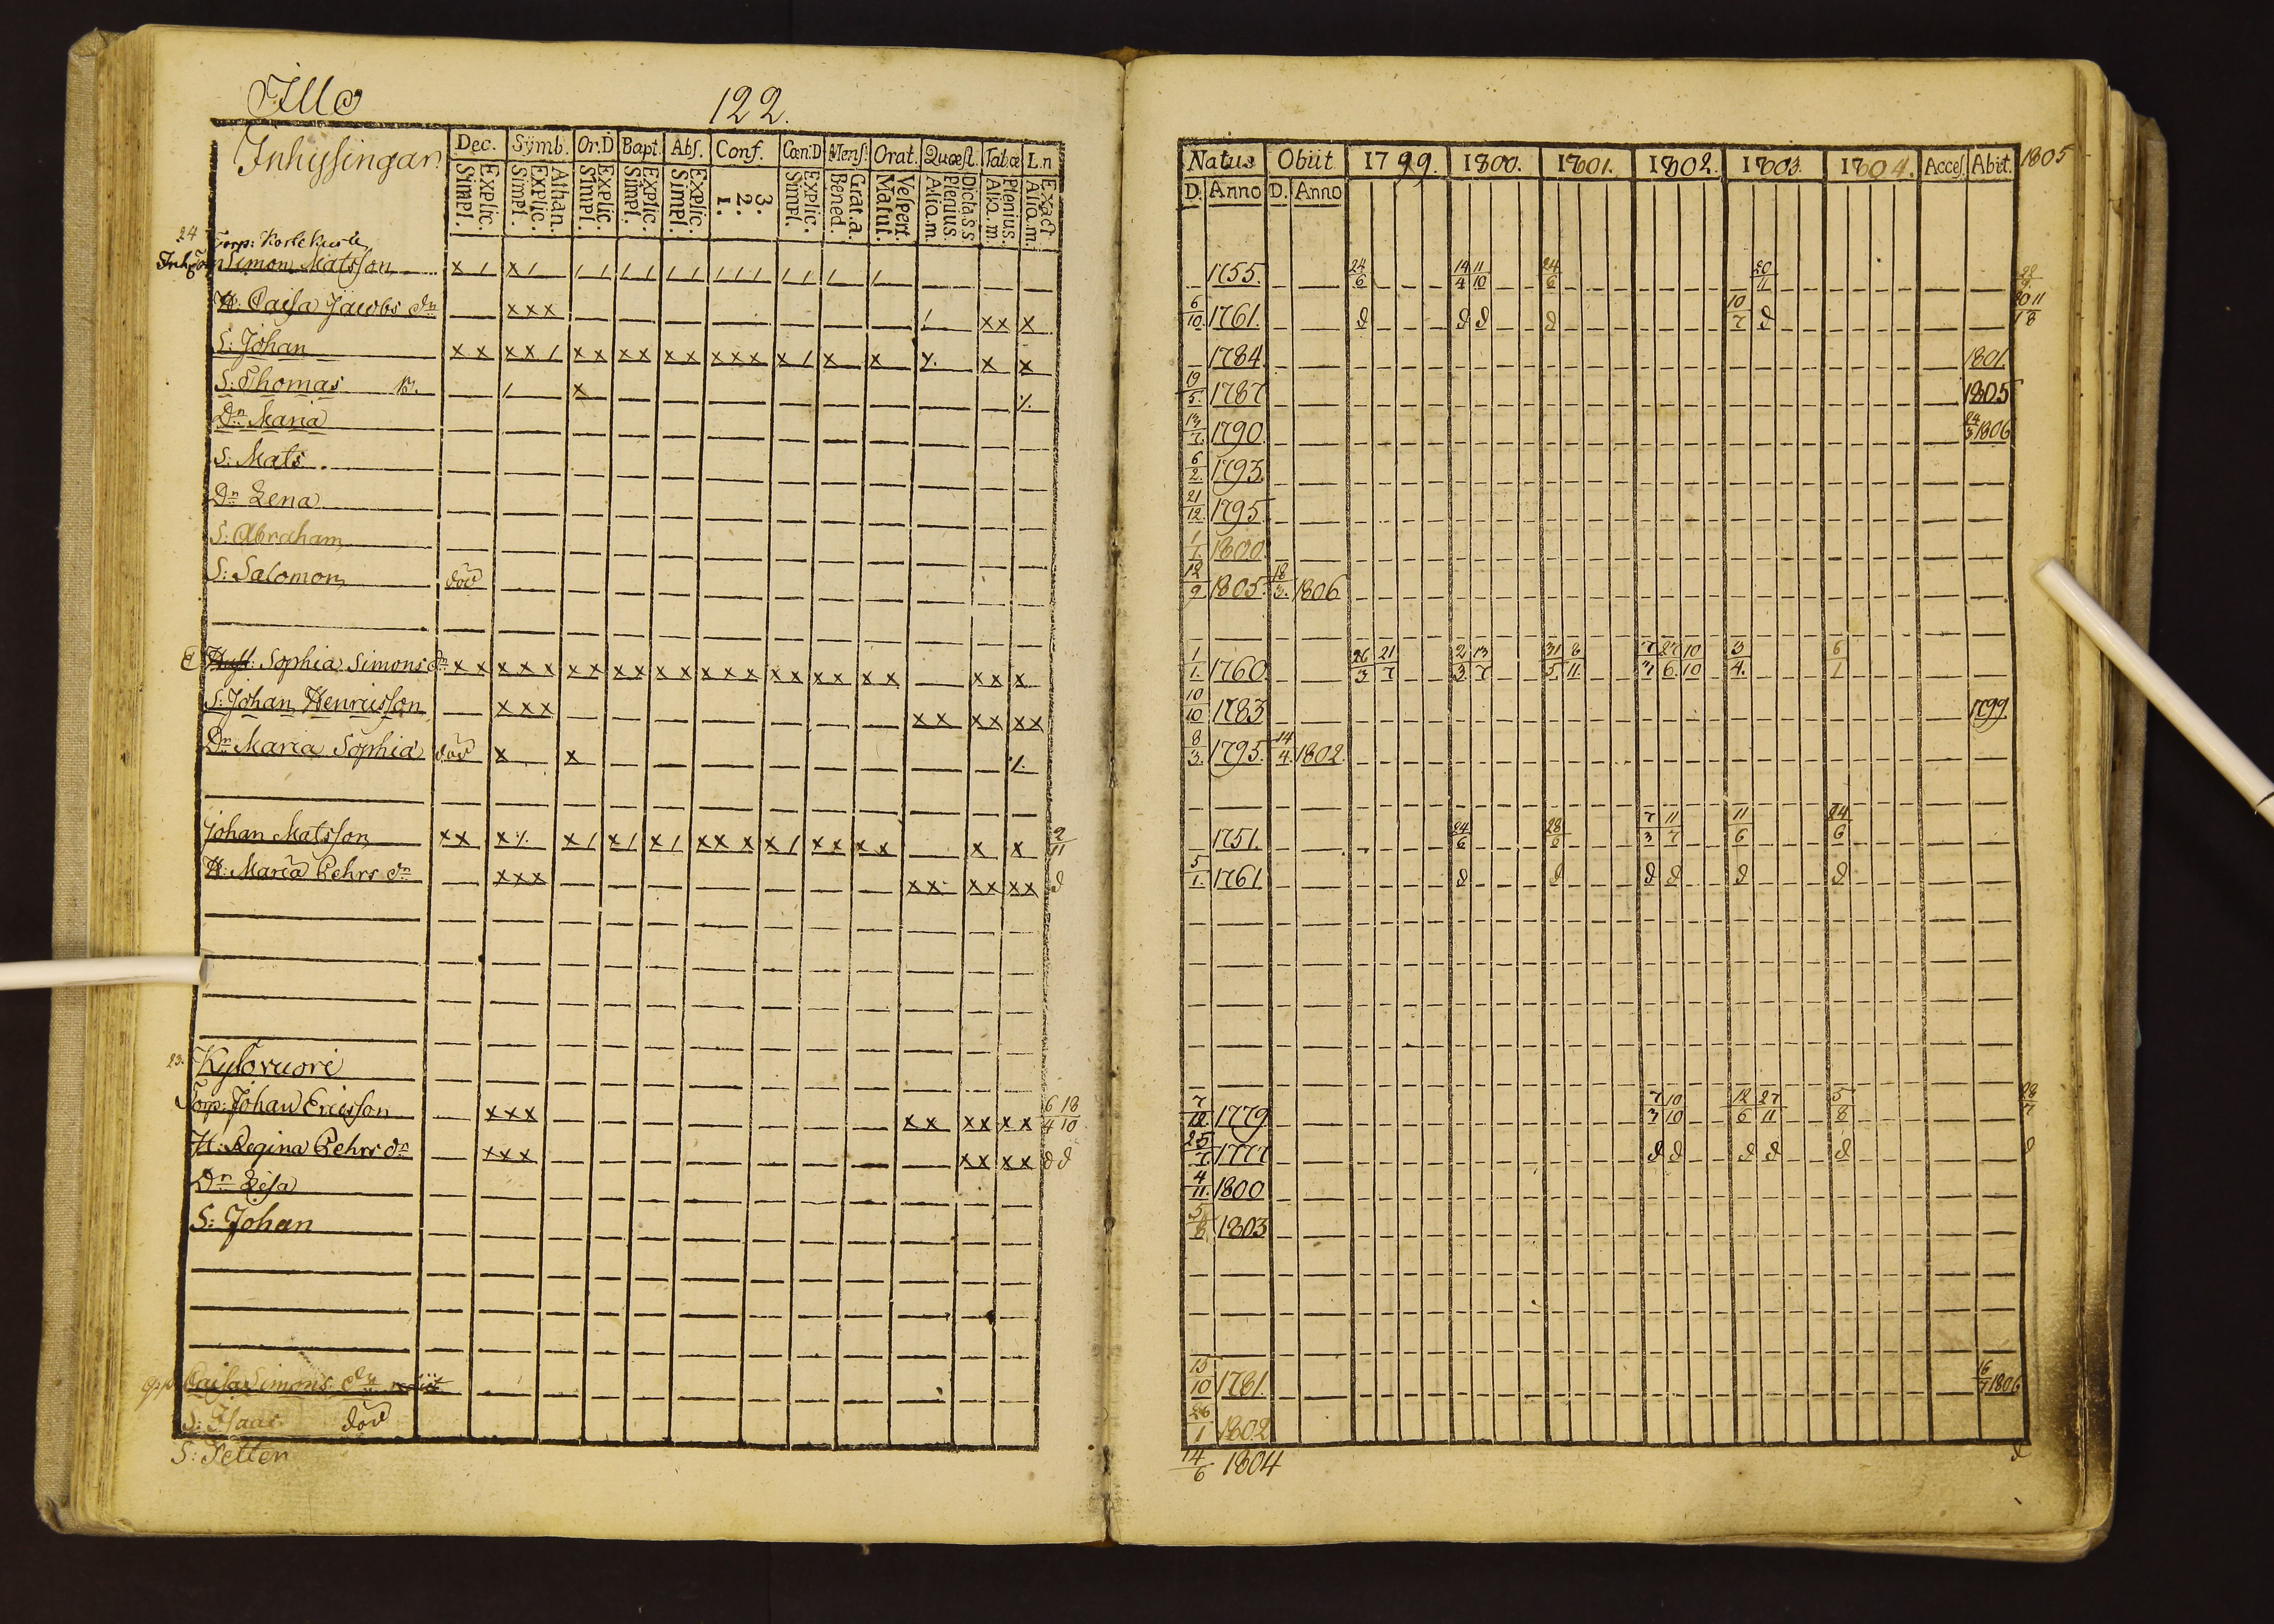 Illo 122.
Inhysingar Dec. Sÿmb. Or.D Bapt. Abs. Conf. Cœn:D Mens. Orat. Quæst. Tabæ L.n
Simpl. Explic. Simpl. Explic. Athan. Simpl. Explic. Simpl. Explic. Simpl. Explic. 1. 2. 3. Simpl. Explic. Bened. Grat.a. Matut. Vespert. Aliq.m. Plenius. Dicta s.s. Aliq.m. Plenius. Aliq.m. Exact
24 Torp:
Simon Matsson x / x / / / / / / / / / / / / / /
H: Caisa Jacobs dn x x x / x x x
S: Johan x x x x / x x x x x x x x x x / x x x x
S: Thomas / x
Dn Maria
S: Mats
Dn Lena
S: Abraham
S: Salomon död
Sophia Simons dn x x x x x x x x x x x x x x x x x x x x x x x
S: Johan Henricsson x x x x x x x x x
Dn Maria Sophia död x x
Johan Matsson x x x x / x / x / x x x x / x x x x x x 2/11
H: Maria Pehrs dn x x x x x x x x x d
23. Kylövuori
Torp: Johan Ericsson x x x x x x x x x 6/4 18/10
H: Regina Pehrs dn x x x x x x x d d
Dn Lisa
S: Johan
Caisa Simons dn
S: Isaac död
S: Petter
Natus Obiit 1799. 1800. 1801. 1802. 1803. 1804. Acces. Abiit. 1805
D. Anno D. Anno
1755. 24/6 14/4 11/10 24/6 20/11
6/10. 1761. d d d d 10/7 d
1784. 1801.
19/5. 1787. 1805
13/7. 1790. 24/3 1806
6/2. 1793.
21/12. 1795.
1/1. 1800.
12/9 1805. 18/3. 1806
1/1. 1760. 26/3 21/7 2/3 13/7 31/5 8/11. 7/3 27/6 10/10 3/4. 6/1
10/10 1783 1799.
8/3. 1795. 14/4. 1802.
1751. 24/6 28/6 7/3 11/7 11/6 24/6
5/1. 1761 d d d d d d
7/12. 1779 7/3 10/10 12/6 27/11 5/8 28/7
25/7 1777 d d d d d d
4/11. 1800
5/8. 1803
15/10 1781. 16/7 1806
26/1 1802
14/6 1804 d